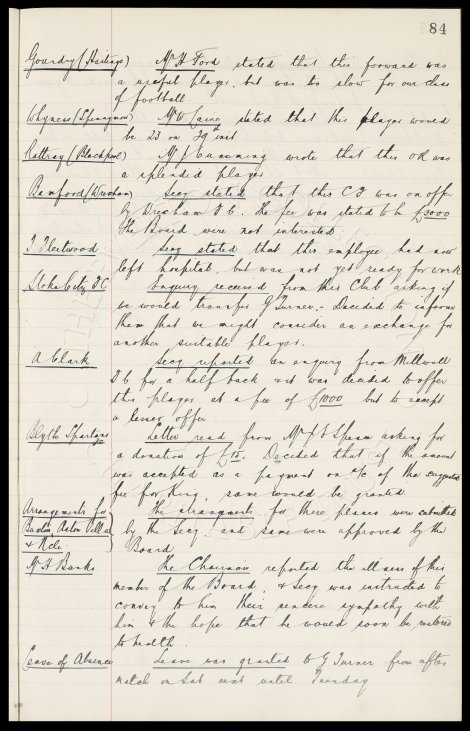 84
Goundry (Hastings) Mr H Ford stated that this forward was
a useful player, but was to slow for our class
of football
Whyness (Spennymoor) Mr W Caine stated that this player would
be 23 on 29th inst
Rattray (Blackpool) Mr J Cumming wrote that this OR was
a splendid player
Bamford (Wrexham) Secy stated that this C F was on offer
by Wrexham F C. The fee was stated to be £3000
The Board were not interested
T Fleetwood Secy stated that this employee had now
left hospital, but was not yet ready for work
Stoke City F C Enquiry received from this Club asking if
we would transfer G Turner. Decided to inform
them that we might consider an exchange for
another suitable player.
A Clark Secy reported an enquiry from Millwall
F C for a half back & it was decided to offer
this player at a fee of £1000 but to accept
a lesser offer
Blyth Spartans Letter read from Mr J F asking for
a donation of £15. Decided that if the amount
was accepted as a payment on a/c of the suggested
fee for King, same would be granted
Arrangements for The arrangements for these places were submitted
Buxton, Aston Villa by the Secy and same were approved by the
& Board
Mr H Banks The Chairman reported the illness of this
member of the Board, & Secy was instructed to
convey to him their sincere sympathy with
him & the hope that he would soon be restored
to health.
Leave of Absence Leave was granted to G Turner from after
match on Sat next until Tuesday